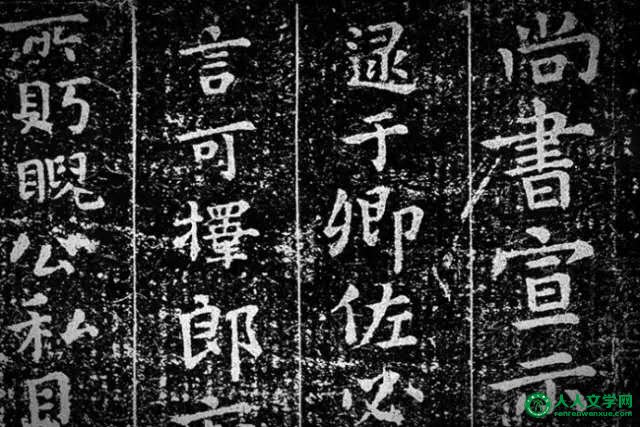 尚書宣示
逮于卿佐必
言可擇郎
所眄睨公私
人人文学网
renrenwenxue.com